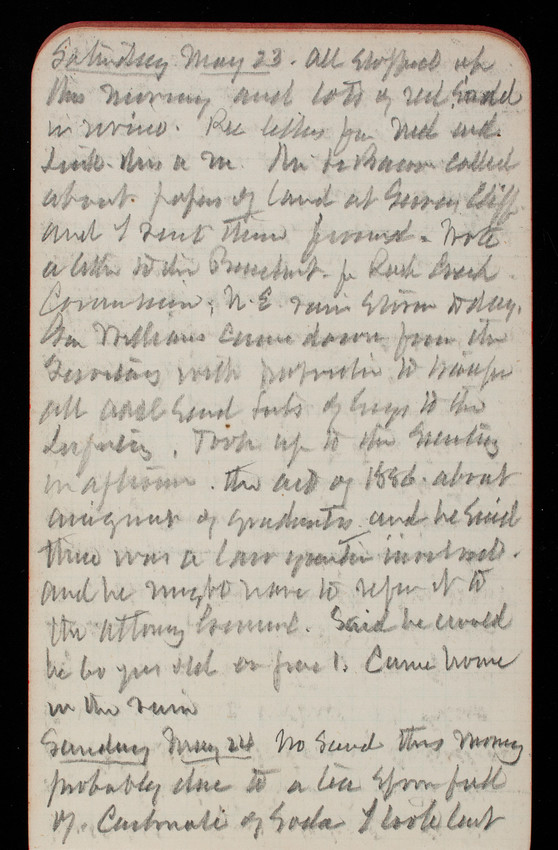 Saturday May 23. All stopped up
this morning and lots of red sand
in urine. Rec letter from Ned and
this a m. Mr Bacon called
about papers of land at
and I sent them forward. Wrote
a letter to the President for Rock Creek
Commission. N.E. rain storm today.
Gen Williams came down from the
Secretary with to
all and of to the
. Took up to the Secretary
in afternoon the act of 1886 about
of graduates and he said
there was a law question involved
and he might have to refer it to
the Attorney General. Said he would
be 60 years old on June 1. Came home
in the rain
Sunday May 24 No sand this morning
probably due to a tea spoon full
of Carbonate of Soda I took last